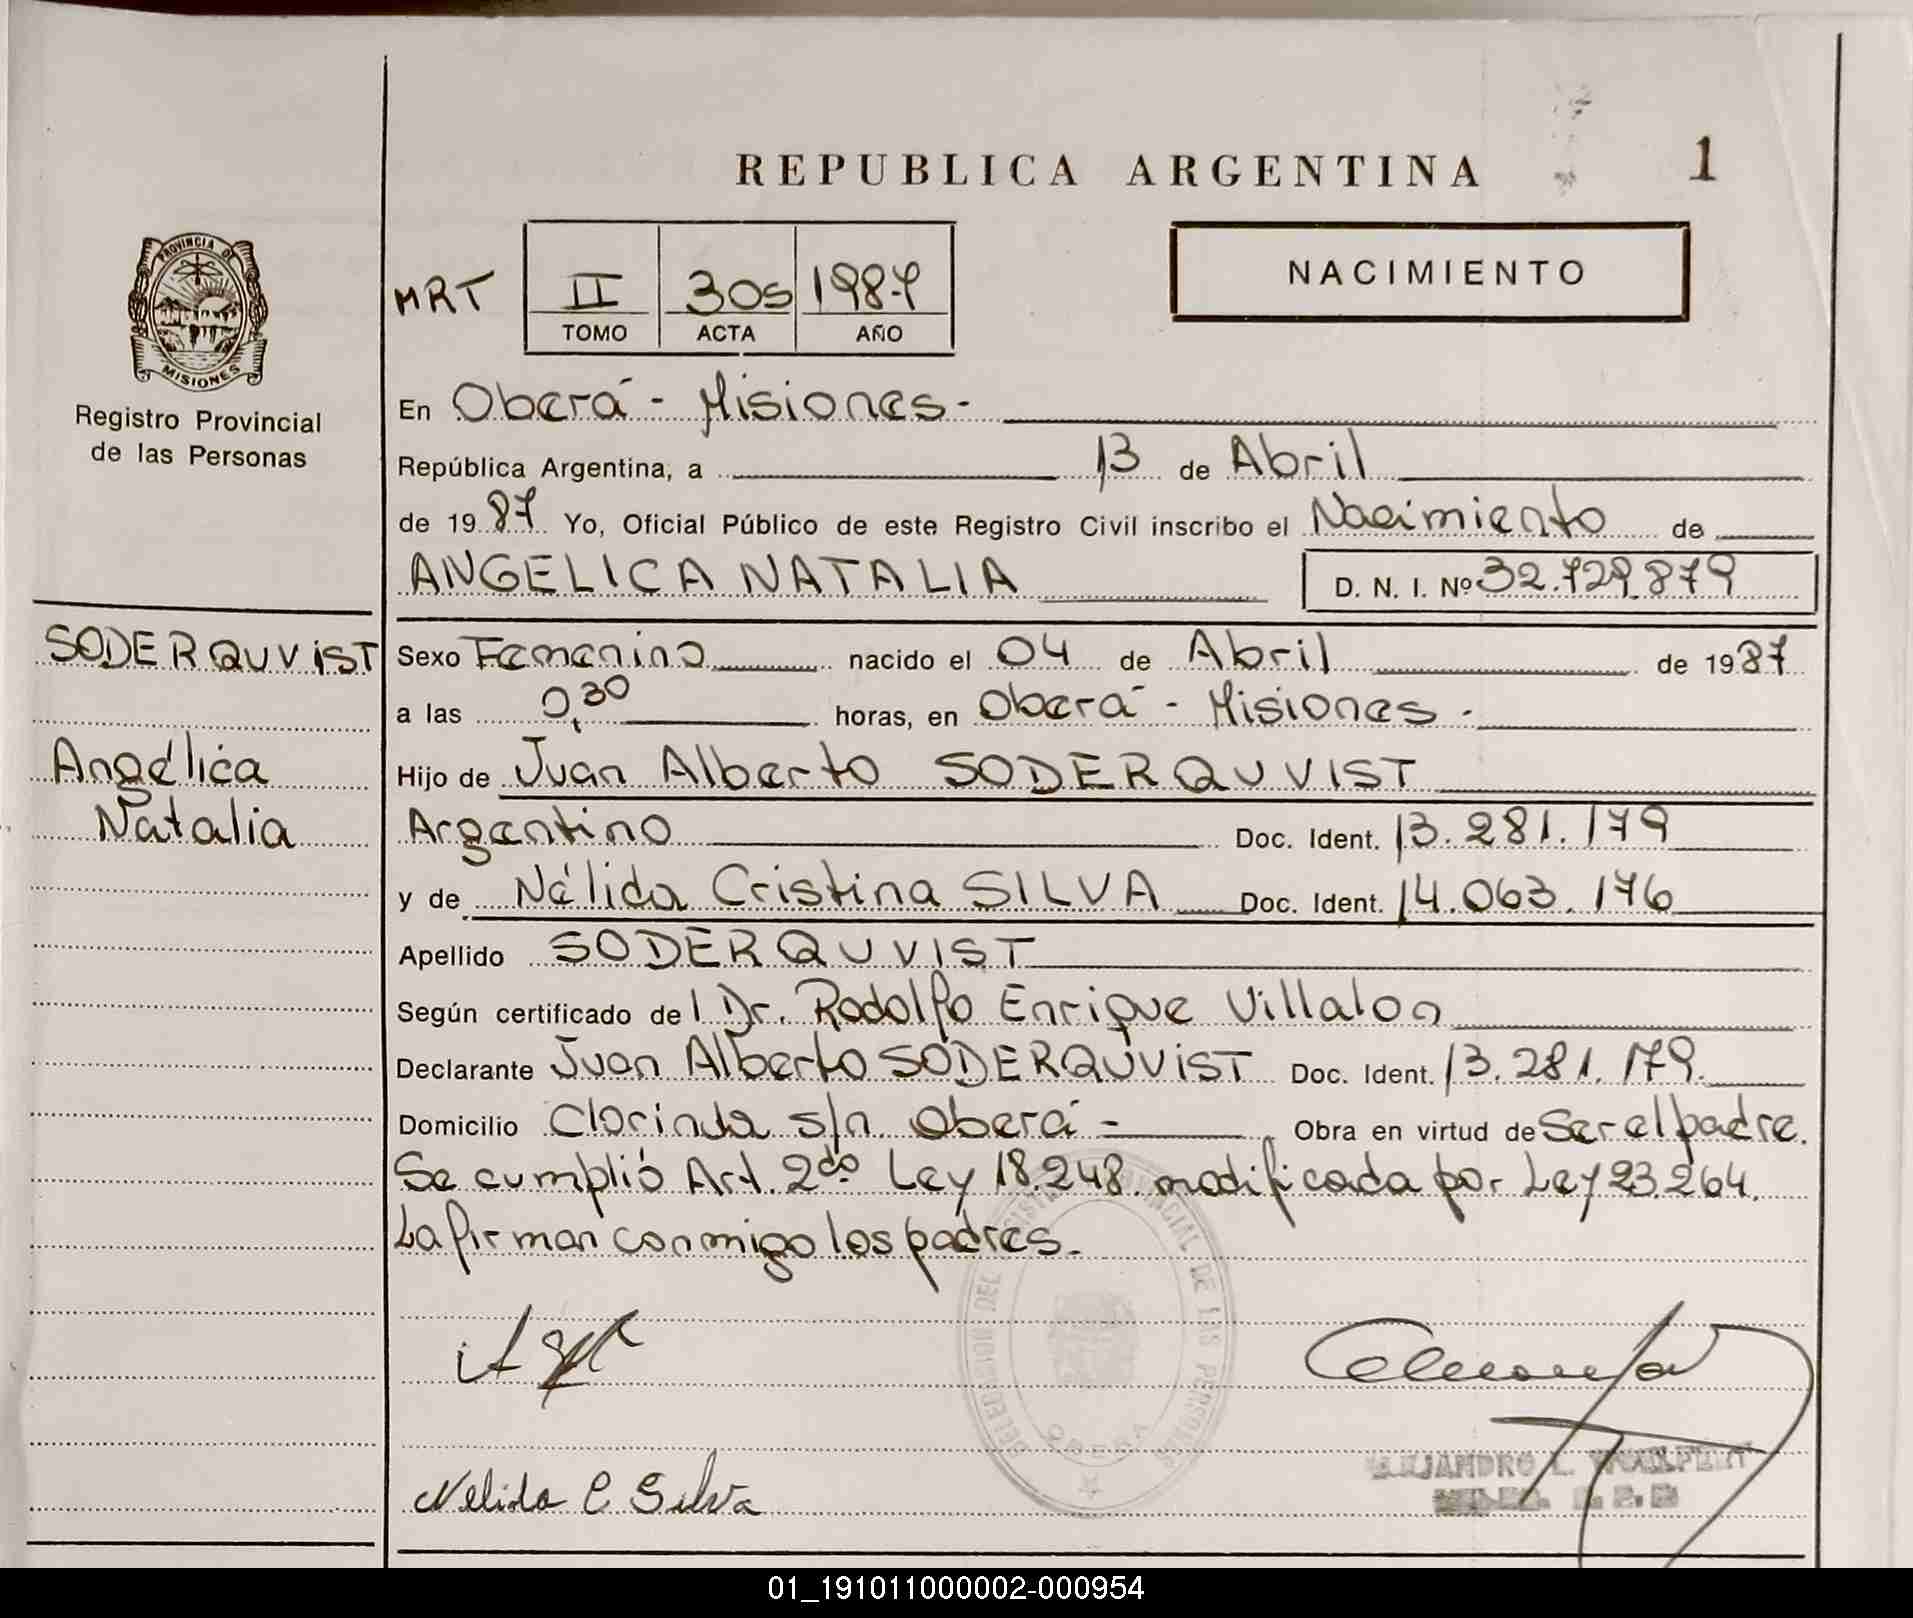 REPUBLICA ARGENTINA 1
PROVINCIA DE
MISIONES
Registro Provincial
de las Personas
MRT II 305 1987
TOMO ACTA AÑO
NACIMIENTO
En Oberá - Misiones -
República Argentina, a 13 de Abril
de 1987 Yo, Oficial Público de este Registro Civil inscribo el Nacimiento de
ANGELICA NATALIA D. N. I. Nº 32.729.879
SODERQUVIST
Angélica
Natalia
Sexo Femenino nacido el 04 de Abril de 1987
a las 0,30 horas, en Oberá - Misiones -
Hijo de Juan Alberto SODERQUVIST
Argentino Doc. Ident. 13.281.179
y de Nélida Cristina SILVA Doc. Ident. 14.063.176
Apellido SODERQUVIST
Según certificado del Dr. Rodolfo Enrique Villalon
Declarante Juan Alberto SODERQUVIST Doc. Ident. 13.281.179.
Domicilio Clorinda s/n Oberá - Obra en virtud de Ser el padre.
Se cumplió Art. 2do Ley 18.248. modificada por Ley 23.264.
La firman conmigo los padres.-
DELEGACION DEL REGISTRO PROVINCIAL DE LAS PERSONAS
OBERA
Nelida C Silva
ALEJANDRO L.
01_191011000002-000954